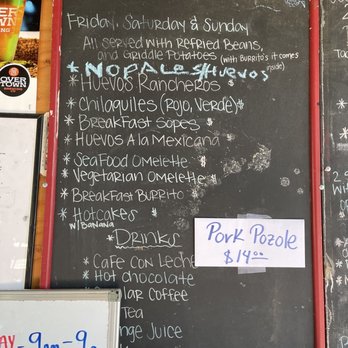 Friday, Saturday & Sunday
All served with Refried Beans,
and Griddle Potatoes (with Burrito's it comes inside)
* Nopales/Huevos *
* Huevos Rancheros *
* Chilaquiles (Rojo, Verde) *
* Breakfast Sopes *
* Huevos A la Mexicana *
* Seafood Omelette *
* Vegetarian Omelette *
* Breakfast Burrito *
* Hotcakes *
w/Banana
* Drinks *
* Cafe con Leche
* Hot chocolate
Coffee
Tea
Juice
Pork Pozole
$14.00
OVER
TOWN
9am-9